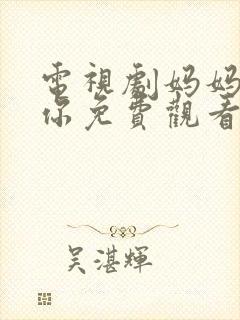 電視劇妈妈
你免費觀看
吴湛輝